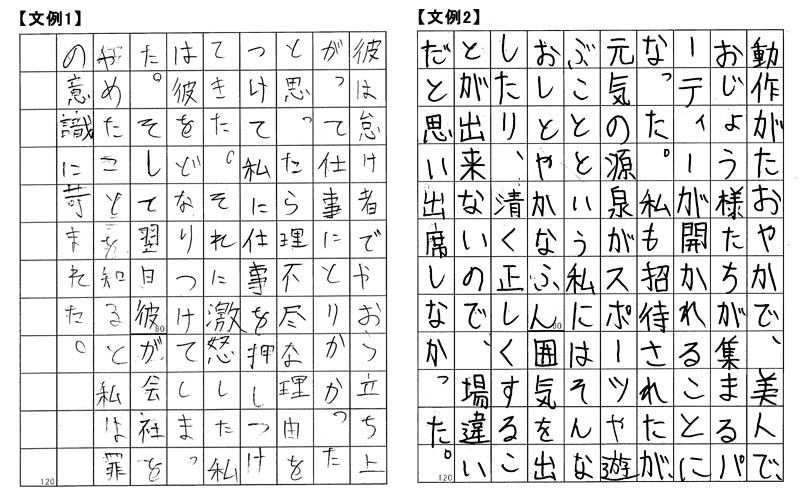 【文例1】
彼は怠け者でやおら立ち上
がって仕事にとりかかった
と思ったら理不尽な理由を
つけて私に仕事を押しつけ
てきた。それに激怒した私
は彼をどなりつけてしまっ
た。そして翌日彼が会社を
80
やめたことを知ると私は罪
の意識に苛まれた。
120
【文例2】
動作がたおやかで、美人で、
おじょう様たちが集まるパ
ーティーが開かれることに
なった。私も招待されたが、
元気の源泉がスポーツや遊
ぶことという私にはそんな
おしとやかなふん囲気を出
80
したり、清く正しくするこ
とが出来ないので、場違い
だと思い出席しなかった。
120